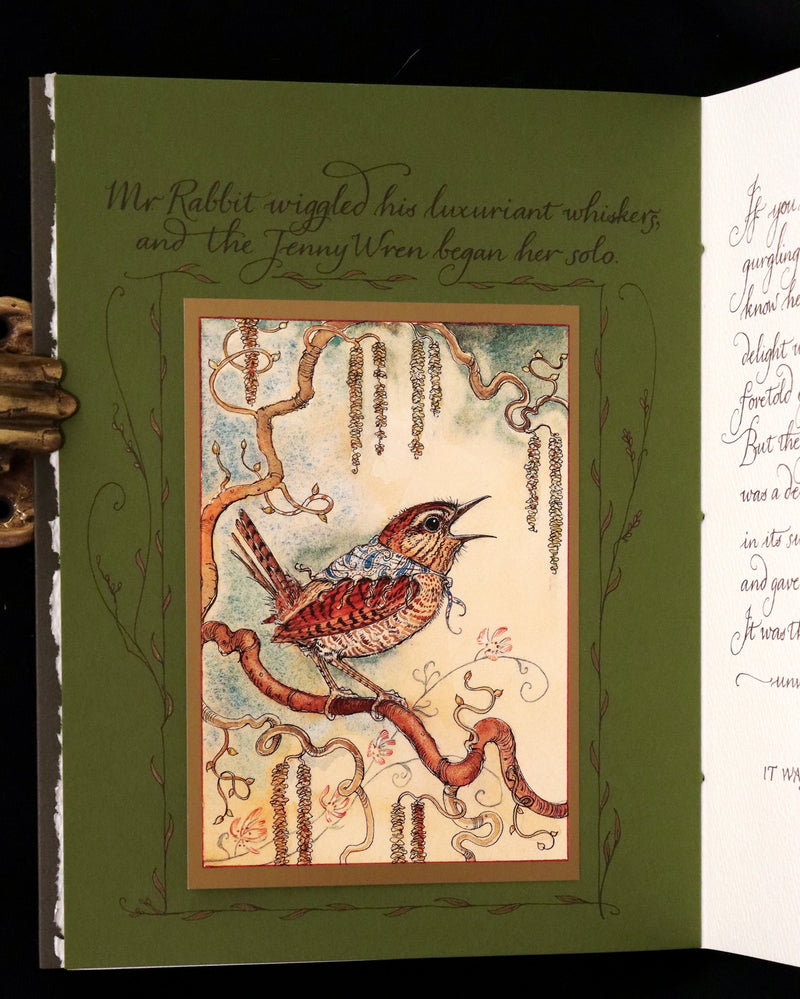 Mr. Rabbit wiggled his luxuriant whiskers,
and the Jenny Wren began her solo.
If you
gurgling
know he
delight w
foretold
But the
was a de
in its su
and gave
It was th
unw
IT WA